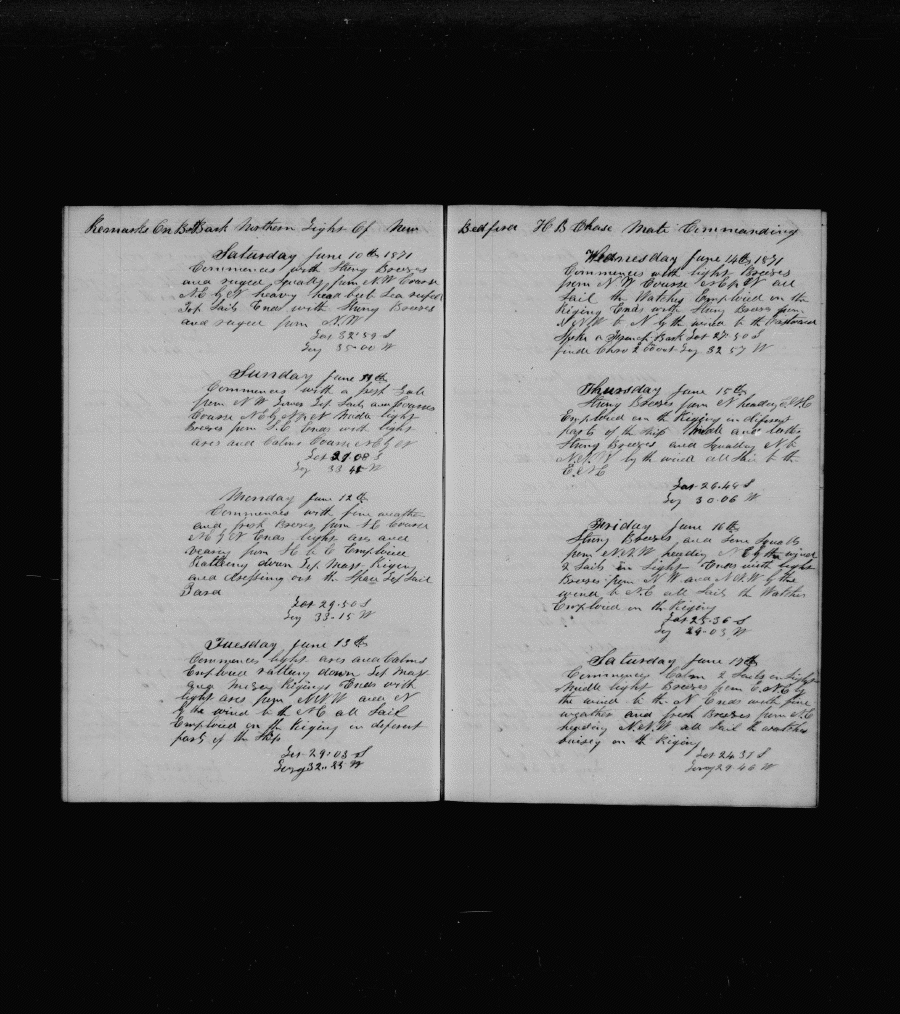 Remarks On Bd Bark Northern Light Of New
Saturday June 10th 1871
Commences with Strong Breezes
and ruged Squaly from N.W. Course
N.E. by N heavy head beet Sea reefed
Top Sails Ends with Strong Breezes
and ruged from N.W
Lat 32-39 S
Log 35-00 W
Sunday June 11th
Commences with a fresh Gale
from N W Lower Top Sails and
Course N E by N Middle light
Breezes from S.E Ends with light
ares and Calms Course N E by N
Lat 31 08 S
Log 33 45 W
Monday June 12th
Commences with fine weather
and fresh Breezes from Course
N E by N Ends light ares and
vearing from to E Employed
Rattleing down Top Mast Rigeng
and dressing out the Spare Top Sail
Yard
Lat 29-50 S
Log 33-15 W
Tuesday June 13th
Commences light ares and Calms
Employed ratleing down Top Mast
and Mizen Rigings Ends with
light ares from N N W and N
by the wind to the N E all Sail
Employed on the Rigeng in diferent
parts of the Ship
Lat 29-03 S
Long 32-25 W
Bedford H B Chase Mate Commanding
Wednesday June 14th 1871
Commences with light Breezes
from N W Course all
Sail the Watches Employed on the
Rigeng Ends with Strong Breezes from
N N W to N by the wind to the
Spoke a French Bark Lat 27-50 S
finde Chro 2 out Log 32 57 W
Thursday June 15th
Strong Breezes from N heading
Employed on the Rigeng in diferent
parts of the Ship Middle and latter
Strong Breezes and Squaley N to
N.N.W by the wind all Sail to the
E.N.E
Lat 26-44 S
Log 30-06 W
Friday June 16th
Strong Breezes and Some Squalls
from N.N.W heading N E by the wind
2 Sails in Sight Ends with light
Breezes from N W and N.N.W by the
wind to N.E all Sail the Watches
Employed on the Rigeng
Lat 25-36 S
Log 29-03 W
Saturday June 17th
Commences Calm 2 Sails in Sight
Middle light Breezes from E.N.E by
the wind to the N Ends with fine
weather and fresh Breezes from N.E
heading N.N.W all Sail the watches
buisey on the Rigeng
Lat 24 31 S
Long 29-46 W